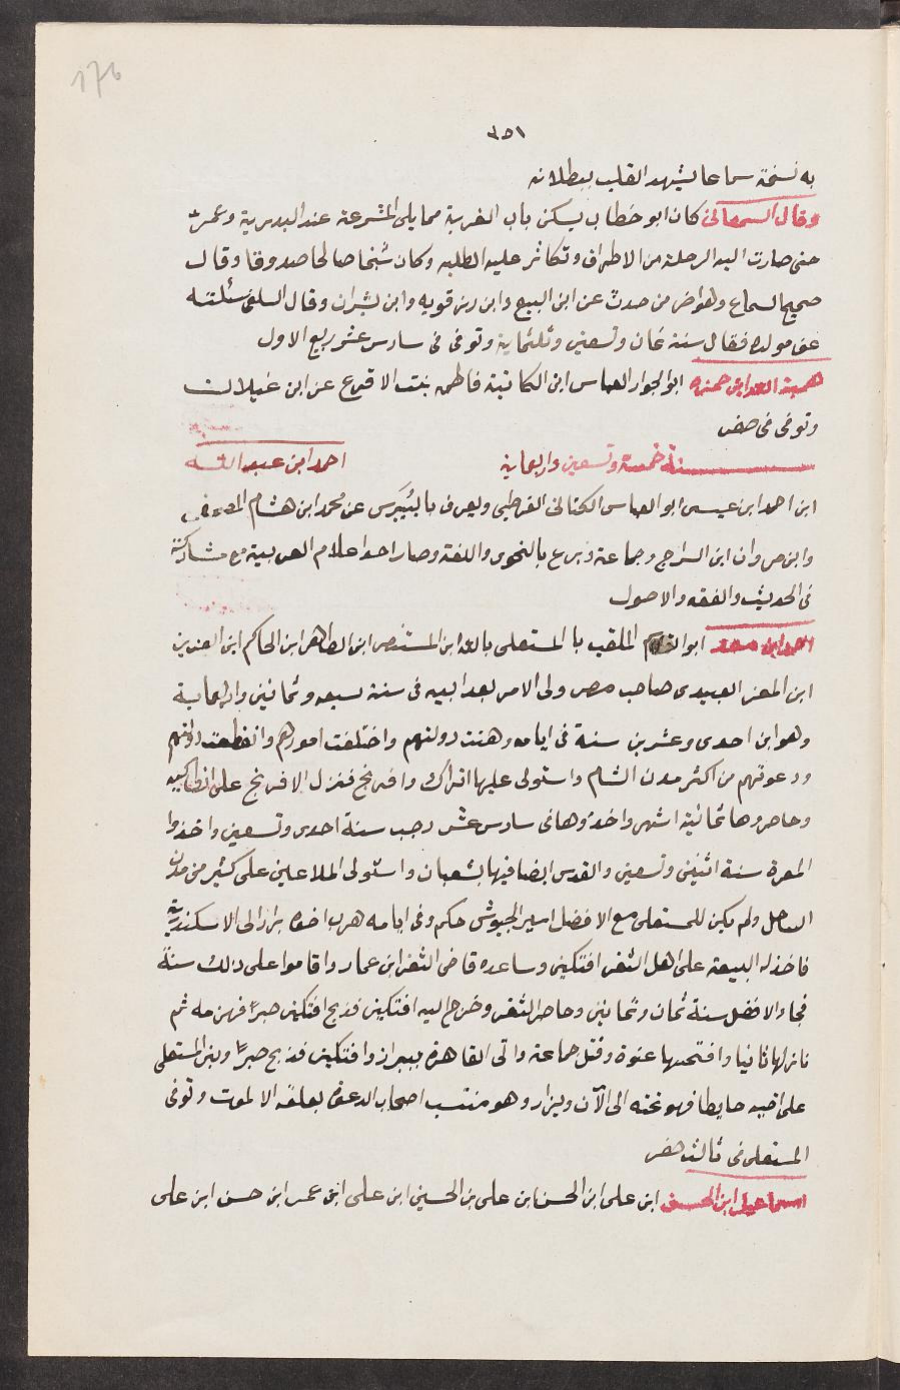 176
٣٥١
به نسخة سماعا يشهد القلب ببطلانه
وقال السمعانى كان ابو خطاب يسكن باب الغربة مما يلى المشرعة عند البدرية وعمّر
حتى صارت اليه الرحلة من الاطراف وتكاثر عليه الطلبه وكان شيخا صالحا صدوقا وقال
صحيح السماع وهو اخر من حدث عن ابن البيع وابن رزقويه وابن بشران وقال السلفى سئلته
عن مولده فقال سنة ثمان وتسعين وثلثماية وتوفى فى سادس عشر ربيع الاول
هبة الله ابن حمزه ابو الجوار العباس ابن الكاتبة فاطمه بنت الاقرع عن ابن غيلان
وتوفى فى صفر
سنة خمسة وتسعين واربعاية احمد ابن عبد الله
ابن احمد ابن عيسى ابو العباس الكنانى القرطبى ويعرف بالبُيَيْرس عن محمد ابن هشام المصحفى
وابن مروان ابن السراج وجماعة وبرع بالنحو واللغة وصار احد اعلام العربية مع مشاركته
فى الحديث والفقه والاصول
احمد ابن معد ابو القاسم الملقب با المستعلى بالله ابن المستنصر ابن الظاهر ابن الحاكم ابن العزيز
ابن المعز العبيدى صاحب مصر ولى الامر بعد ابيه فى سنة سبعه وثمانين واربعاية
وهو ابن احدى وعشرين سنة فى ايامه وهنت دولتهم واختلفت امورهم وانقطعت دولتهم
ودعوتهم من اكثر مدن الشام واستولى عليها اتراك وافرنج فنزل الافرنج على انطاكيه
وحاصروها ثمانية اشهر واخذوها فى سادس عشر رجب سنة احدى وتسعين واخذوا
المعرة سنة اثنين وتسعين والقدس ايضا فيها بشعبان واستولى الملاعين على كثير من مدن
الساحل ولم يكن للمستعلى مع الافضل امير الجيوش حكم وفى ايامه هرب اخوه نزار الى الاسكندرية
فاخذ له البيعة على اهل الثغر افتكين وساعده قاضى الثغر ابن عمار واقاموا على ذلك سنة
فجاء الافضل سنة ثمان وثمانين وحاصر الثغر وخرج اليه افتكين فهزمه ثم
نازلها ثانيا وافتحها عنوة وقتل جماعة واتى القاهرة بنزار وافتكين فذبح صبرًا وبنى المستعلى
على اخيه حايطا فهو تحته الى الآن ونزار وهو منتسب اصحاب الدعوة بقلعة الالموت وتوفى
المستعلى فى ثالث صفر
اسماعيل ابن الحسن ابن على ابن الحسن ابن على بن الحسين ابن على ابن عمر ابن حسن ابن على